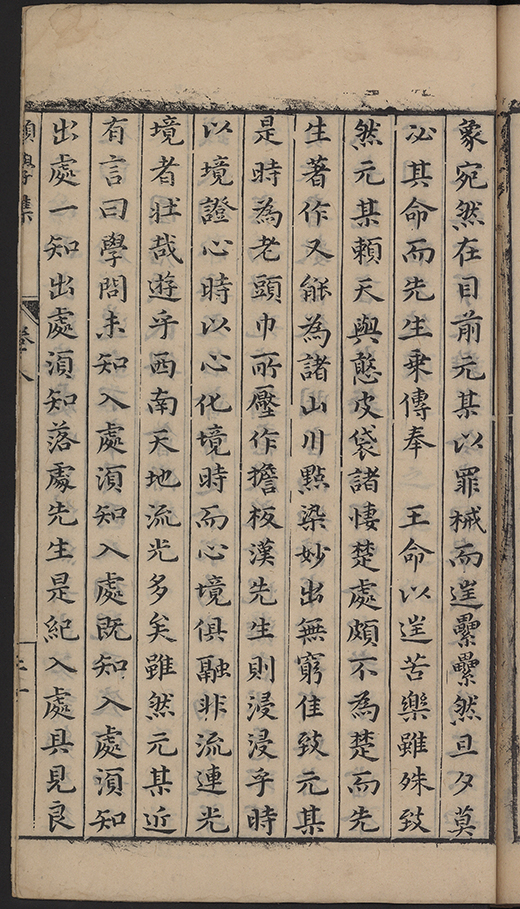 象宛然在目前元某以罪械而逞纍纍然旦夕莫
必其命而先生乗傳奉　王命以逞苦樂雖殊致
然元某賴天與憨皮袋諸悽楚處頗不為楚而先
生著作又能為諸山川㸃染妙出無窮佳致元某
是時為老頭巾所壓作擔板漢先生則浸浸乎時
以境證心時以心化境時而心境俱融非流連光
境者壯哉遊乎西南天地流光多矣雖然元某近
有言曰學問未知入處湏知入處既知入處湏知
出處一知出處湏知落處先生是紀入處具見良
願學集
卷八